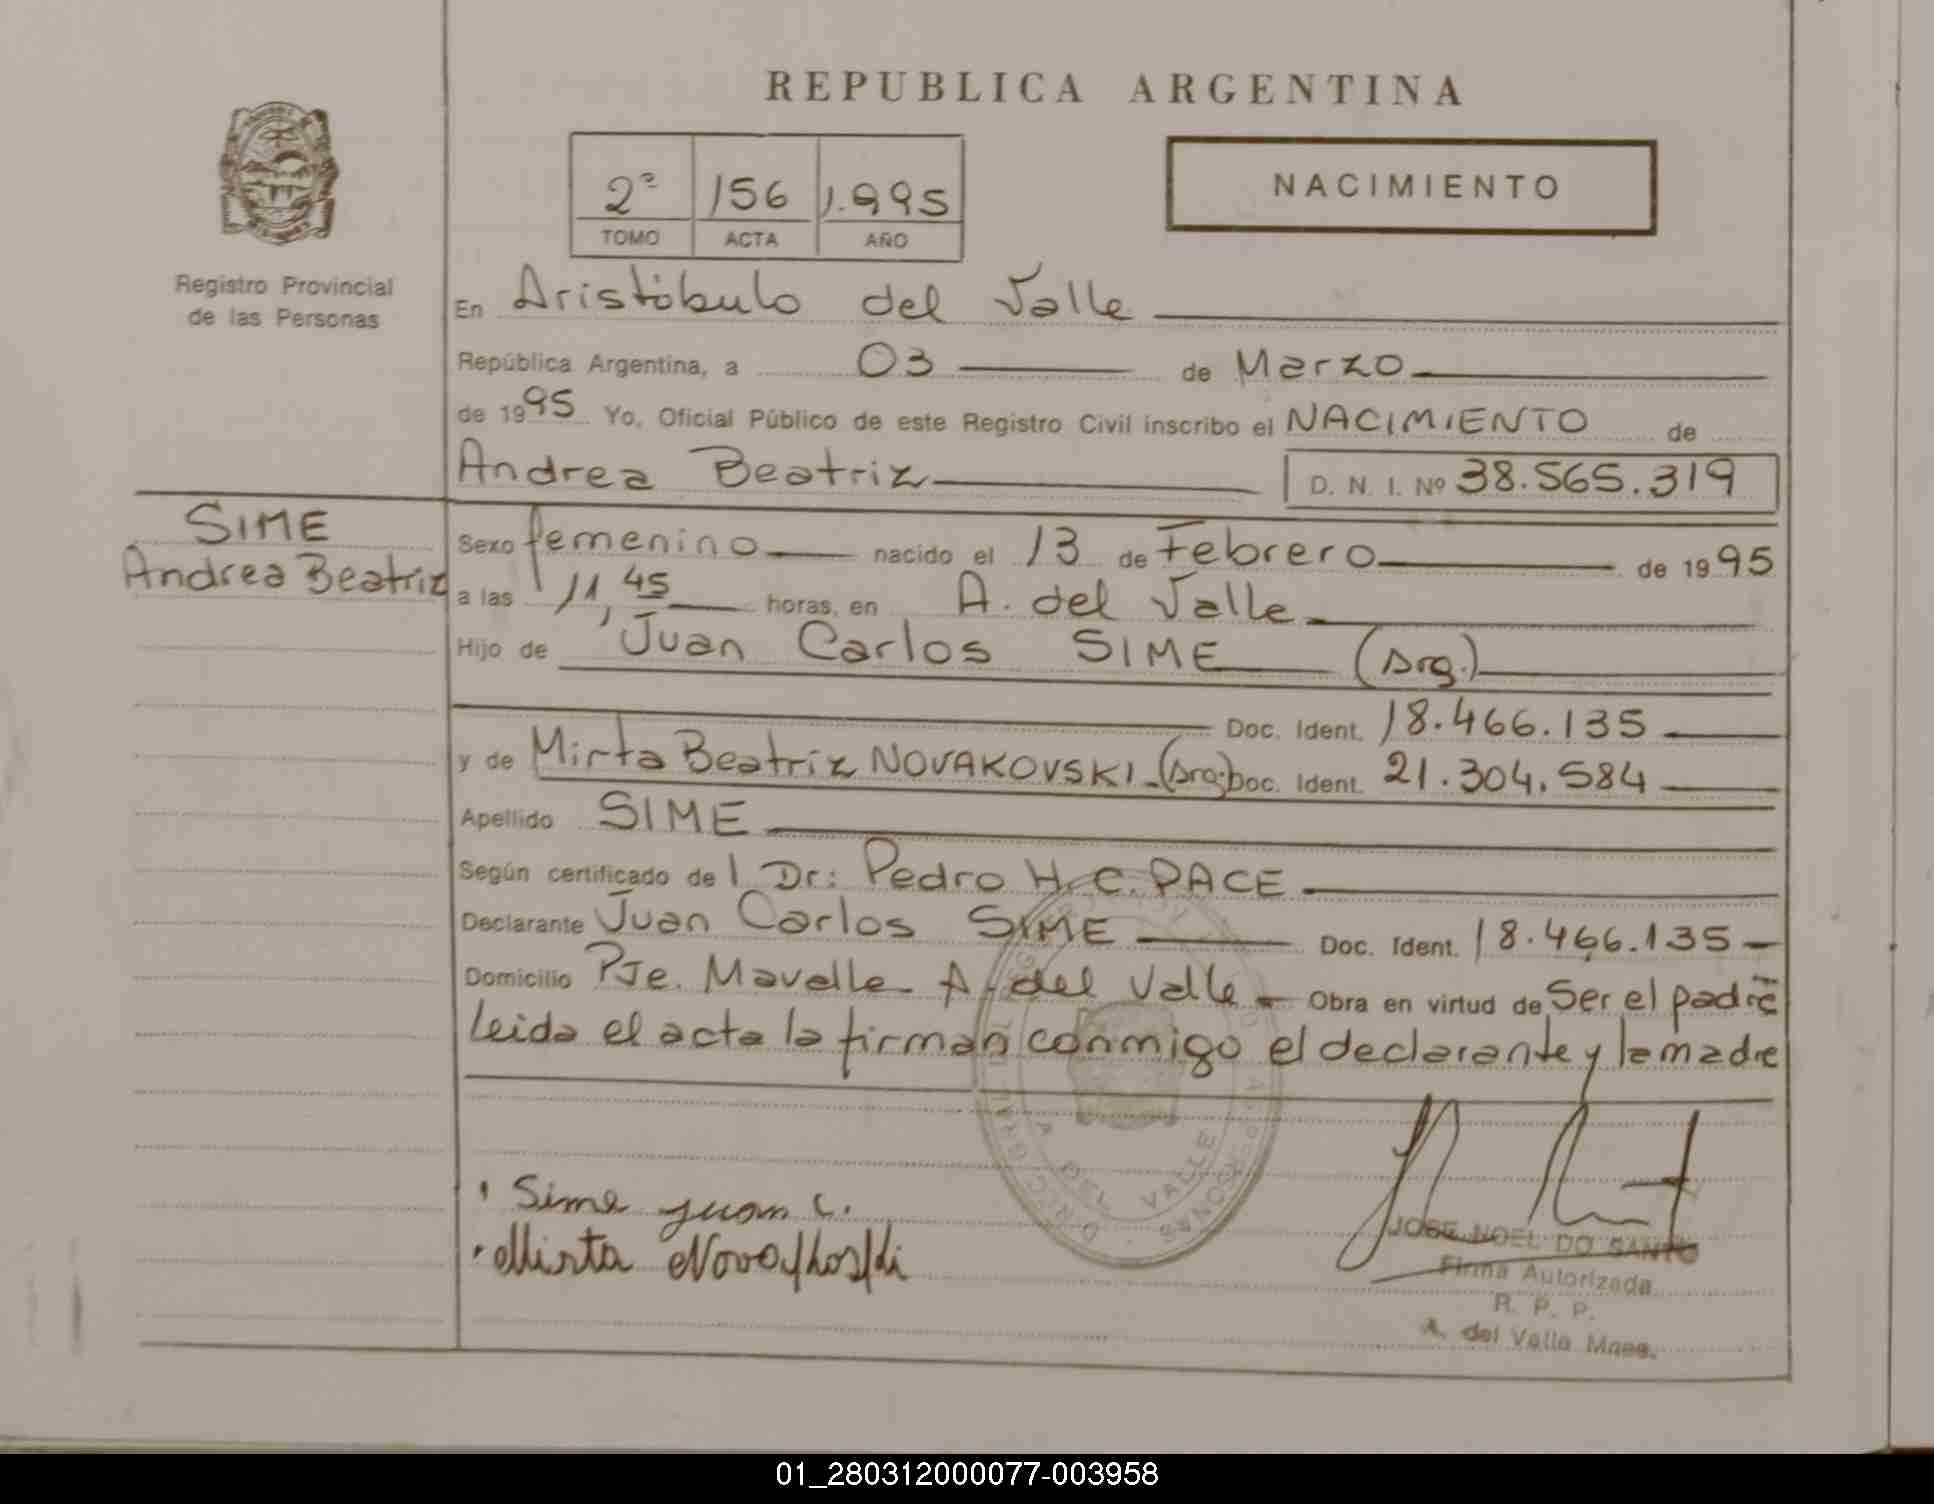 REPUBLICA ARGENTINA
2º 156 1.995
TOMO ACTA AÑO
NACIMIENTO
Registro Provincial
de las Personas
En Aristóbulo del Valle
República Argentina, a 03 de Marzo
de 1995 Yo, Oficial Público de este Registro Civil inscribo el NACIMIENTO de
Andrea Beatriz D. N. I. Nº 38.565.319
SIME
Andrea Beatriz
Sexo femenino nacido el 13 de Febrero de 1995
a las 11,45 horas, en A. del Valle
Hijo de Juan Carlos SIME (Arg.)
Doc. Ident. 18.466.135
y de Mirta Beatriz NOVAKOVSKI-(Arg.) Doc. Ident. 21.304.584
Apellido SIME
Según certificado de l Dr: Pedro H. C. PACE
Declarante Juan Carlos SIME Doc. Ident. 18.466.135
Domicilio Pje. Mavalle- A. del Valle- Obra en virtud de Ser el padre
Leida el acta la firman conmigo el declarante y la madre
A. DEL VALLE
Sime Juan C.
Mirta
JOSE NOEL DO SANTO
Firma Autorizada
R. P. P.
A. del Valle Mnes.
01_280312000077-003958